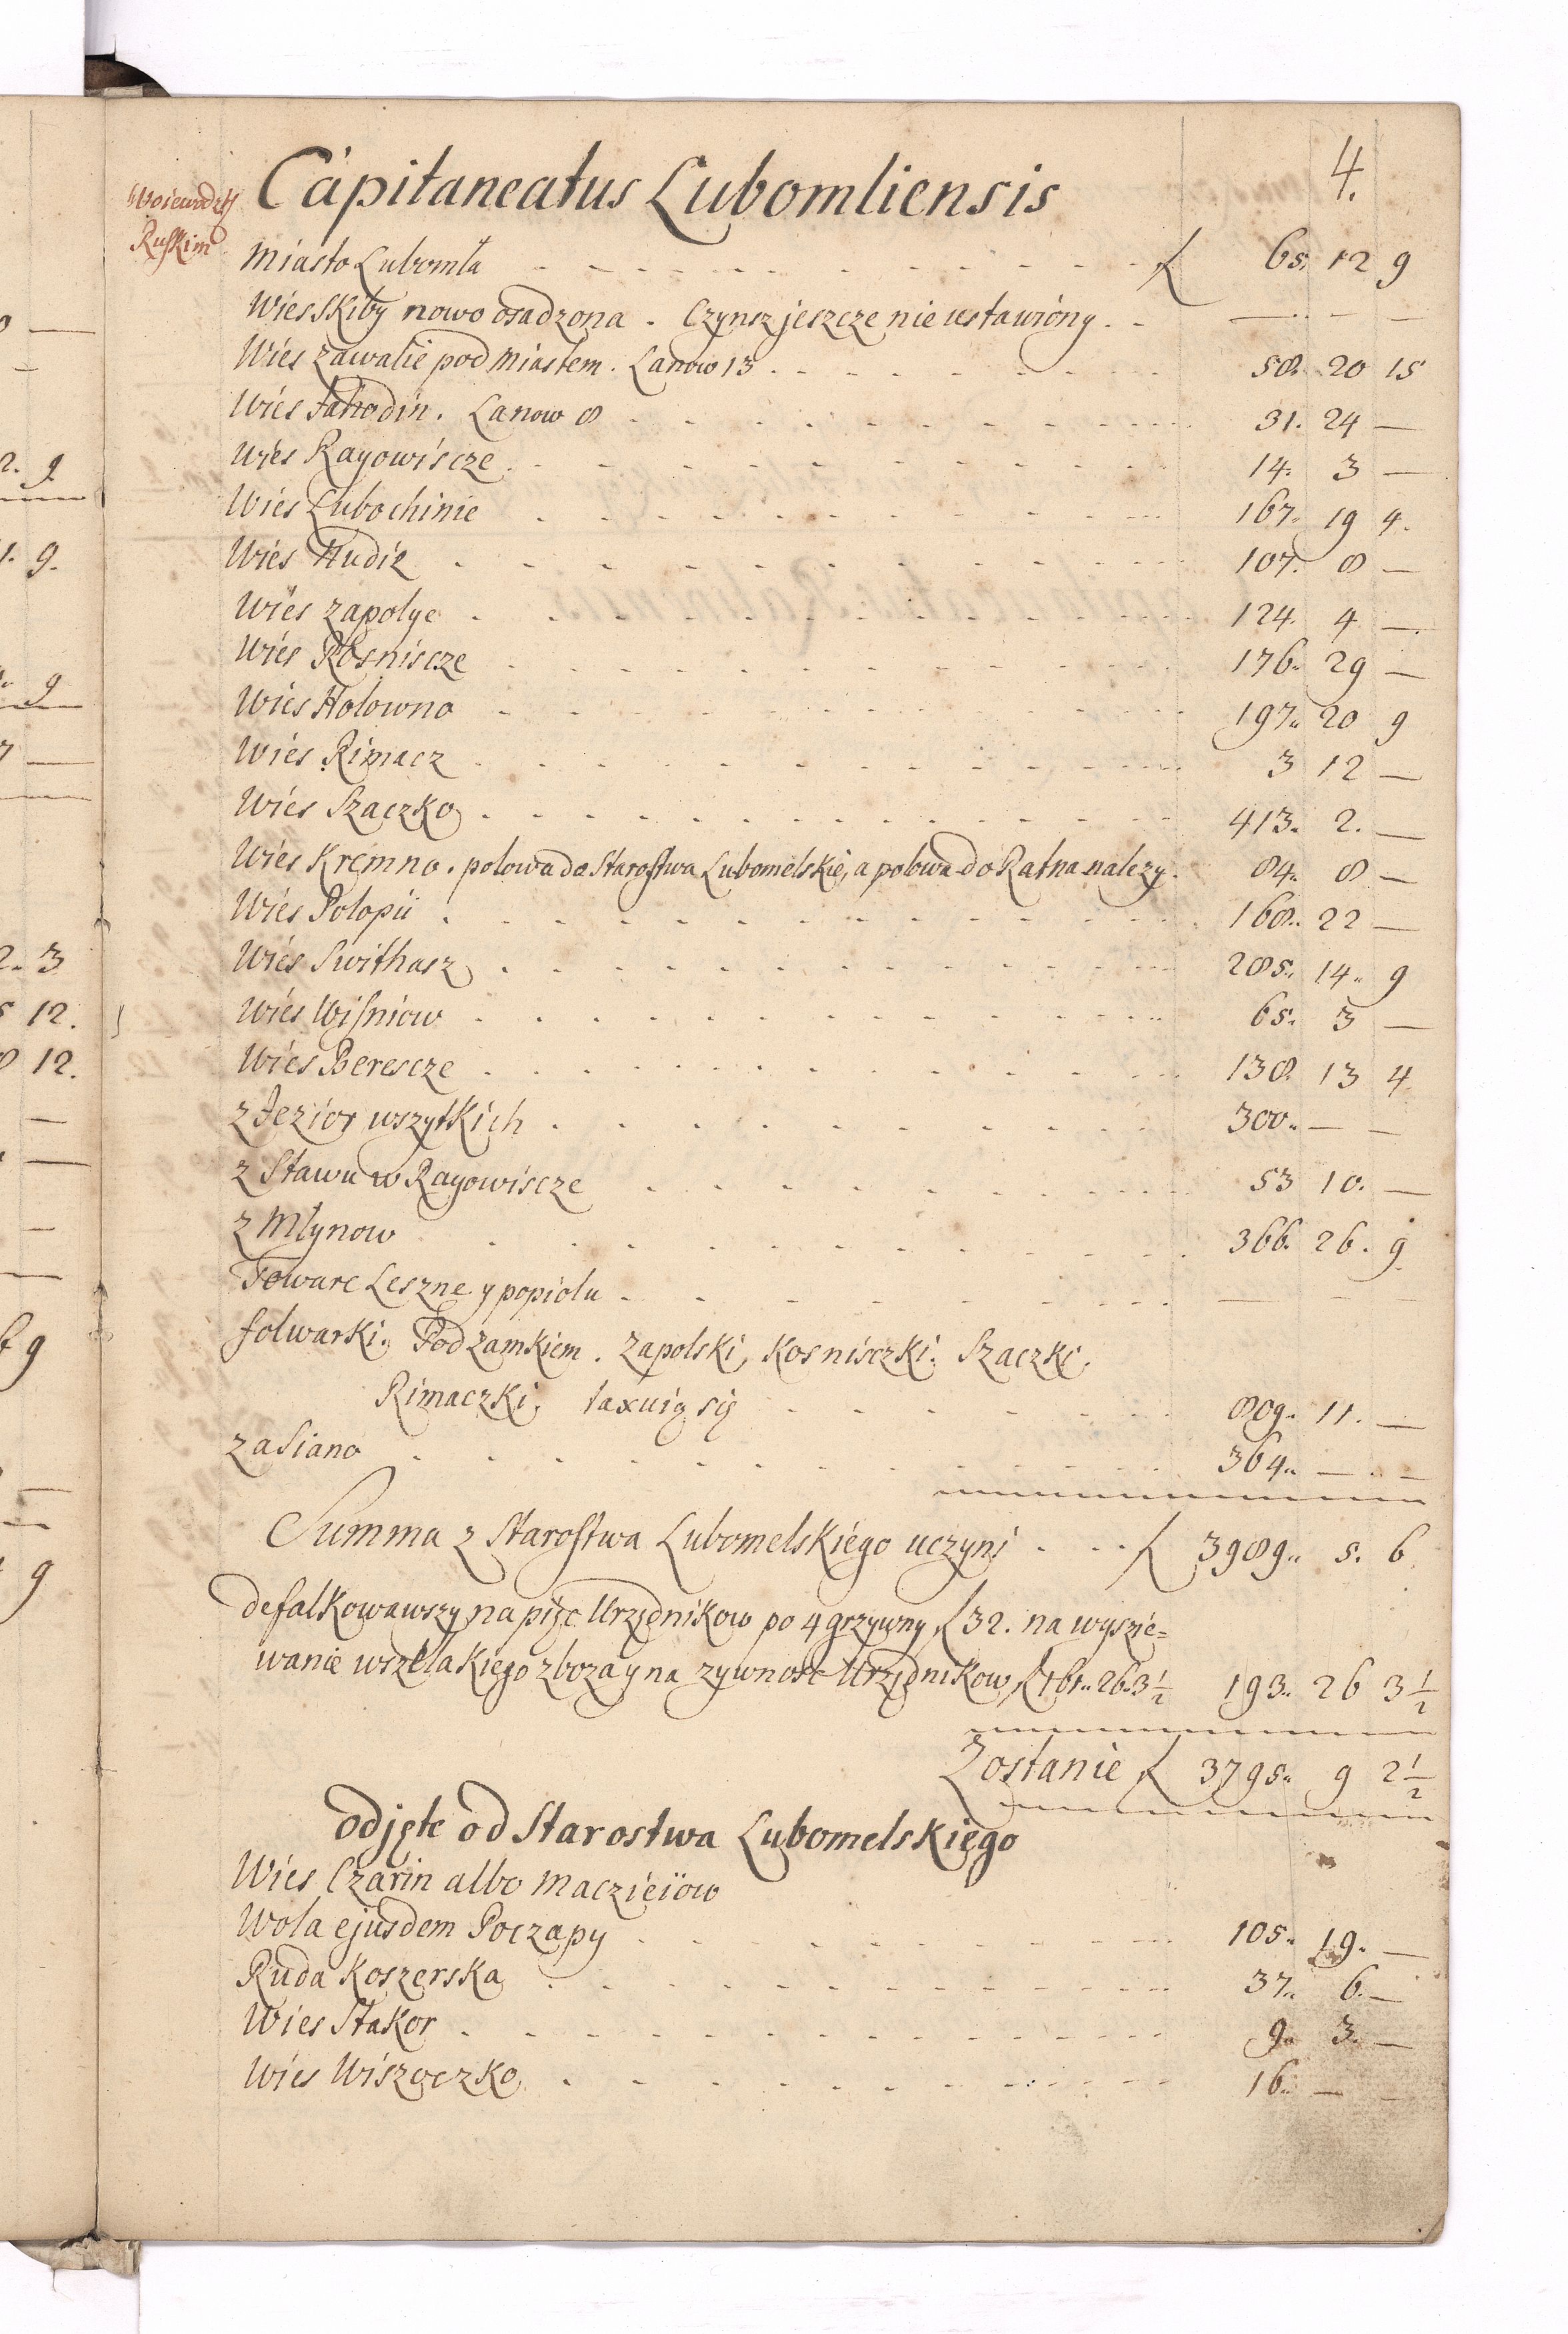 4.
Woiewodztw
Ruskim
Capitaneatus Lubomliensis
Miasto Lubomla ƒ 65. 12 9
Wies Skiby nowo osadzona. Czynsz jeszcze nie ustawióny. — — —
Wies Zawalie pod Miastem. Lanow 13. 58. 20 15
Wies Jahodin. Lanow 8 31. 24 —
Wies Rayowiscze. 14. 3 —
Wies Lubochinie 167. 19 4.
Wies Hudiz 107. 8 —
Wies Zapolye 124. 4 —
Wies Kosniscze 176. 29 —
Wies Holowno 197. 20 9
Wies Rimacz 3 12 —
Wies Szaczko 413. 2. —
Wies Kremno. polowa do Starostwa Lubomelskie, a polowa do Ratna nalezy. 84. 8 —
Wies Polopii 168. 22 —
Wies Swithasz 285. 14. 9
Wies Wisniow 65. 3 —
Wies Berescze 138. 13 4
z Jezior wszytkich 300. — —
z Stawu w Rayowiscze 53 10. —
z Mlynow 366. 26. 9.
Towarc Leszne y popiolu — — —
folwarki. Pod zamkiem. Zapolski, Kosnisczki. Szaczki.
Rimaczki. taxuią się 809. 11. —
za Siano 364. — —
Summa z Starostwa Lubomelskiego uczyni ƒ 3989. 5. 6
defalkowawszy na pięc Urzędnikow po 4 grzywny ƒ 32. na wysie=
wanie wszelakiego zboza y na zywnosc Urzędnikow ƒ 161. 26. 3 1/2 193. 26 3 1/2
Zostanie ƒ 3795. 9 2 1/2
odjęte od Starostwa Lubomelskiego
Wies Czarin albo Macziejow
Wola ejusdem Poczapy 105. 19. —
Ruda Koszerska 37. 6. —
Wies Stakor 9. 3. —
Wies Wiszoczko 16. — —